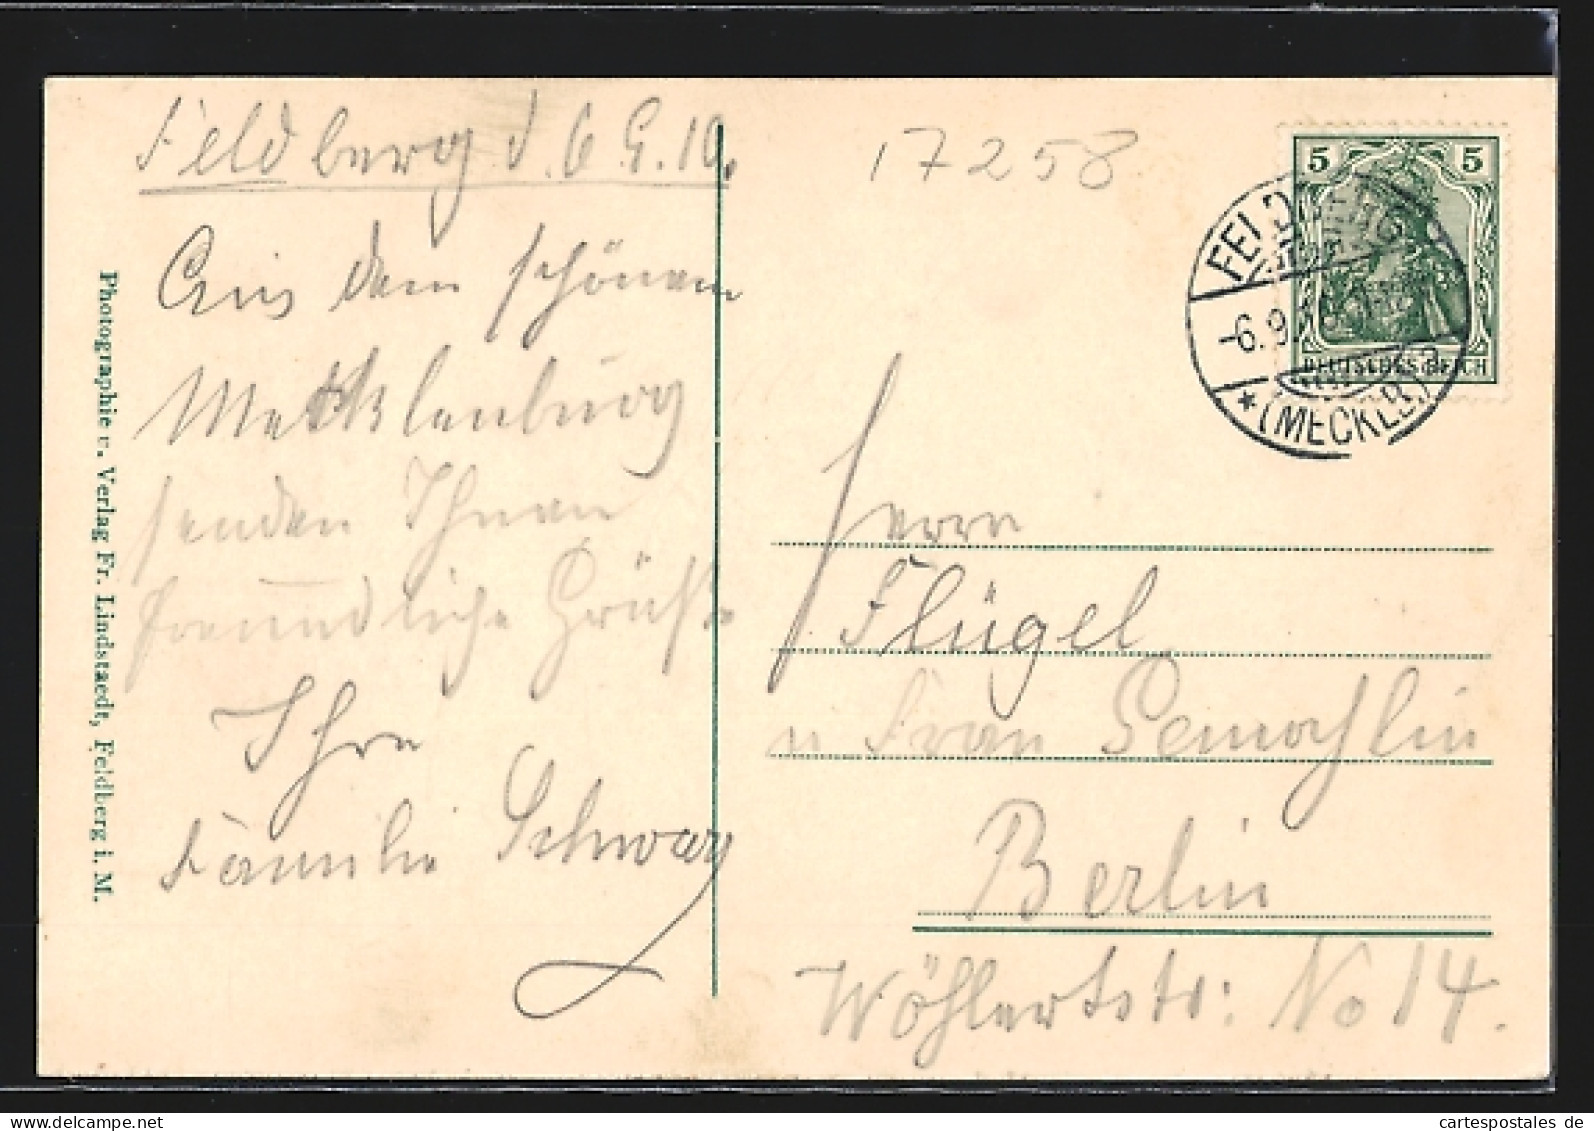 Feldberg d. 6 9. 10.
Aus dem schönen
Mecklenburg
senden Ihnen
freundliche Grüße
Ihre
Familie Schwarz
Photographie u. Verlag Fr. Lindstaedt, Feldberg i. M.
17258
5 5
DEUTSCHES REICH
FELDBERG
-6.9.
* (MECKLB)
Herrn
Flügel
u Frau Gemahlin
Berlin
Wöhlertstr: No 14.
cartespostales de